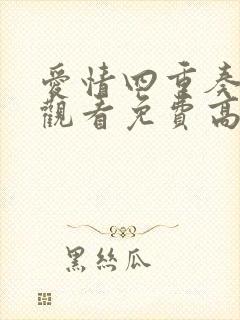 愛情四重奏
觀看免費高
黑絲瓜